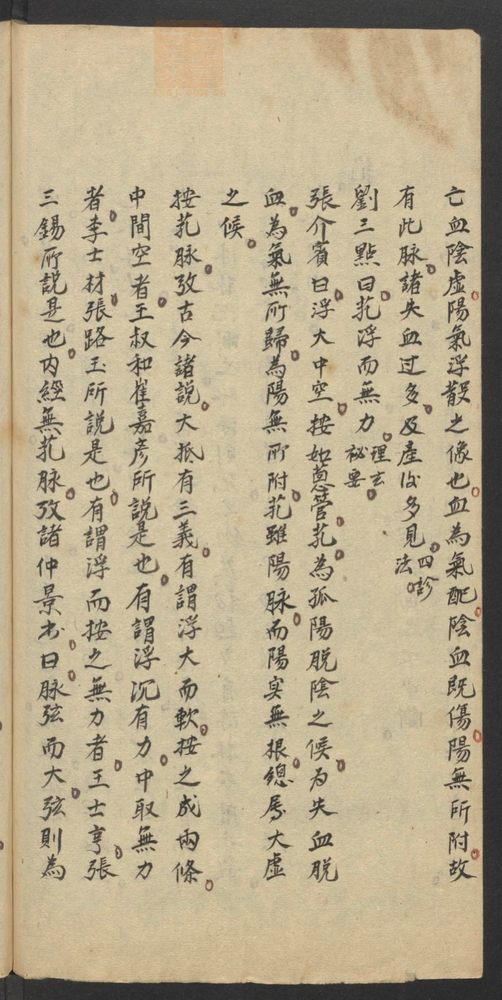 亡血陰虛陽氣浮散之像也血為氣配陰血既傷陽無所附故
有此脉諸失血过多及產後多見四診法
劉三點曰芤浮而無力理玄秘要
張介賓曰浮大中空按如蔥管芤為孤陽脱陰之候为失血脱
血為氣無所歸為陽無所附芤雖陽脉而陽実無根緫属大虛
之候
按芤脉攷古今諸説大抵有三義有謂浮大而軟按之成兩條
中間空者王叔和崔嘉彦所説是也有謂浮沉有力中取無力
者李士材張路玉所説是也有謂浮而按之無力者王士亨張
三錫所説是也内經無芤脉攷諸仲景书曰脉弦而大弦則為